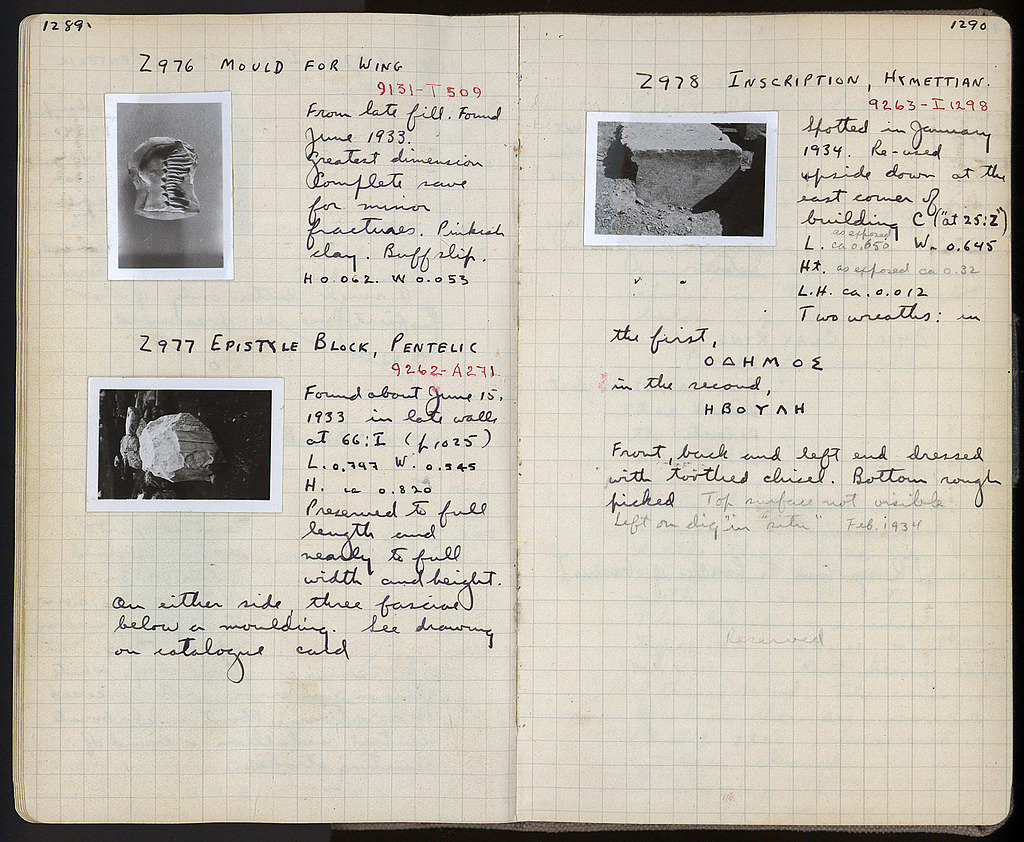 1289
Z976 MOULD FOR WING
9131-T 509
From late fill. Found
June 1933.
Greatest dimension
Complete save
for minor
fractures. Pinkish
clay. Buff slip.
H 0.062. W 0.053
Z977 EPISTYLE BLOCK, PENTELIC
9262-A271
Found about June 15,
1933 in late walls
at 66:I (p. 1025)
L. 0.797 W. 0.545
H. ca 0.820
Preserved to full
length and
nearly to full
width and height.
On either side, three fasciae
below a moulding. See drawing
on catalogue card
1290
Z978 INSCRIPTION, HYMETTIAN.
9263-I 1298
Spotted in January
1934. Re-used
upside down at the
east corner of
building C ("at 25:Z")
as exposed
L. ca 0.650 W. 0.645
Ht. as exposed ca 0.32
L.H. ca. 0.012
Two wreaths: in
the first,
ΟΔΗΜΟΣ
in the second,
ΗΒΟΥΛΗ
Front, back and left end dressed
with toothed chisel. Bottom rough
picked Top surface not visible
Left on dig "in situ" Feb. 1934
Reserved